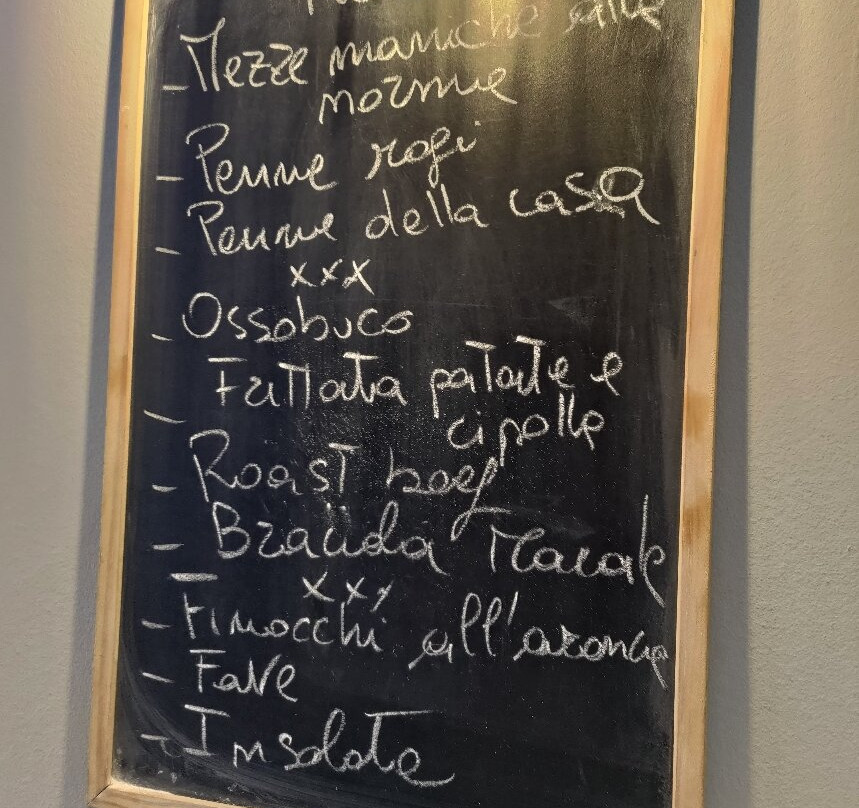 - Mezze maniche alla
norma
- Penne rogi
- Penne della casa
xxx
- Ossobuco
- Frittata patate e
cipolle
- Roast beef
- maiale
xxx
- Finocchi all'arancia
- Fave
- Insalata